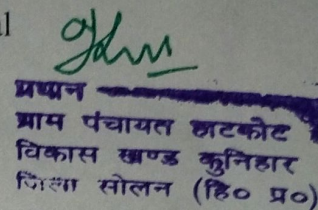 प्रधान
ग्राम पंचायत हाटकोट
विकास खण्ड कुनिहार
जिला सोलन (हि० प्र०)